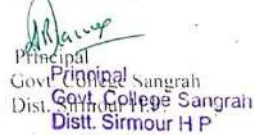 Principal
Govt. College Sangrah
Dist. Sirmour H.P.
Prinnipal
Govt. College Sangrah
Distt. Sirmour H P